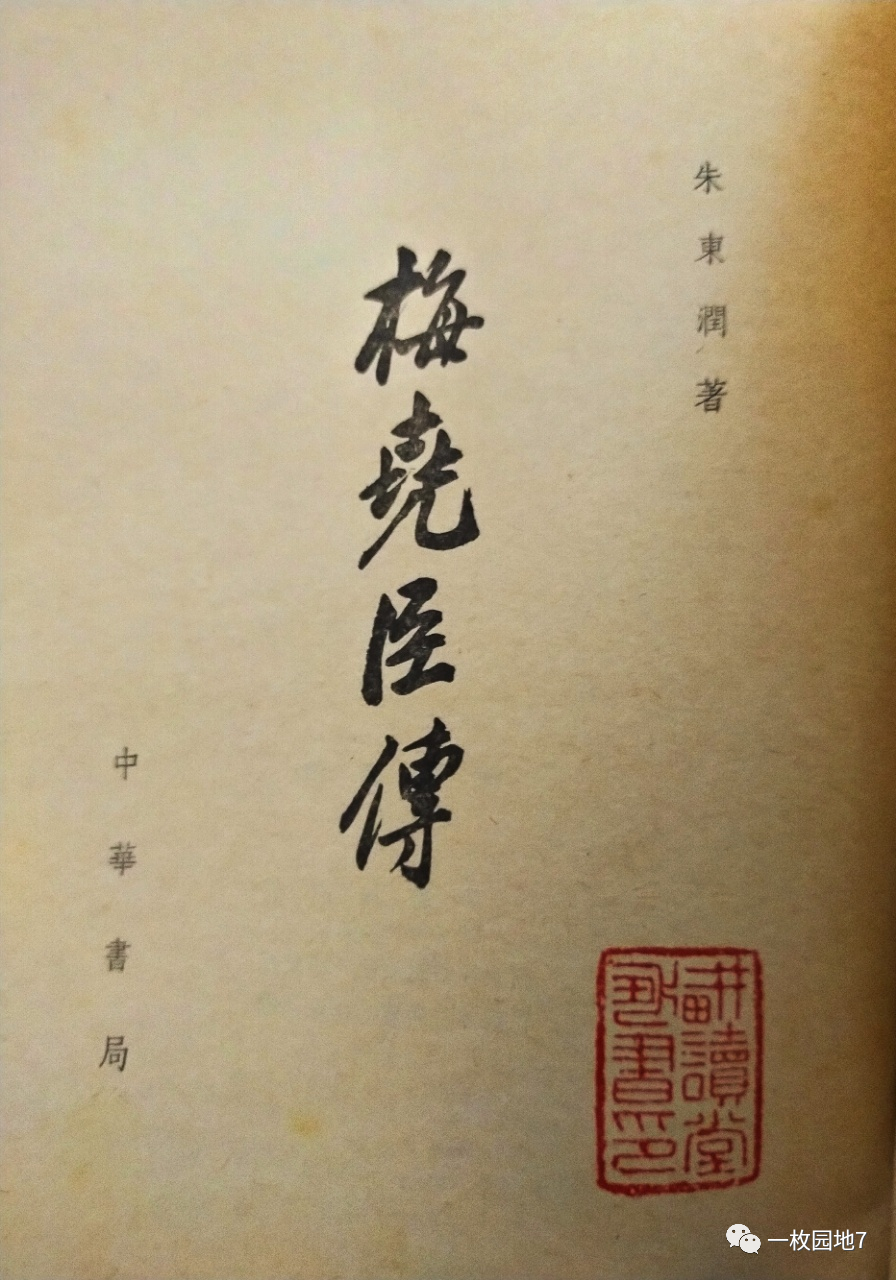 朱東潤著
梅堯臣傳
中華書局
讀堂
書印
一枚园地7